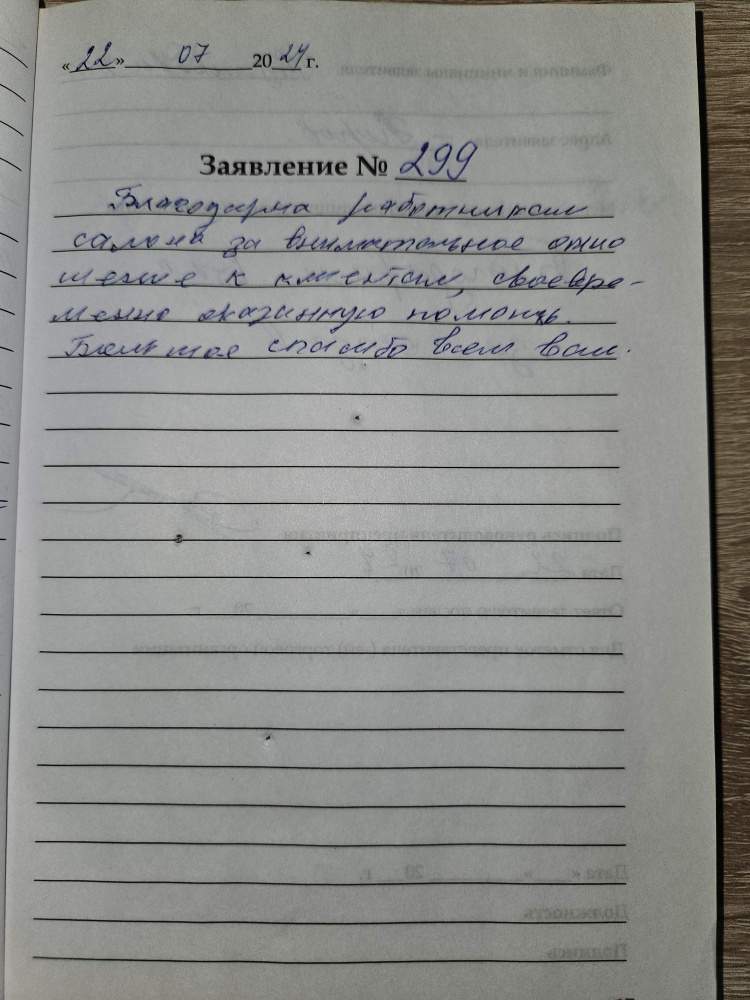 «22» 07 2024 г.
Заявление № 299
Благодарна работникам
салона за внимательное отно
шение к клиентам, своевре-
менно оказанную помощь.
Большое спасибо всем вам.